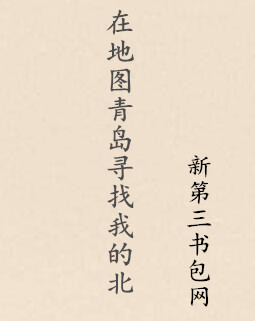 在地图青岛寻找我的北
新第三书包网